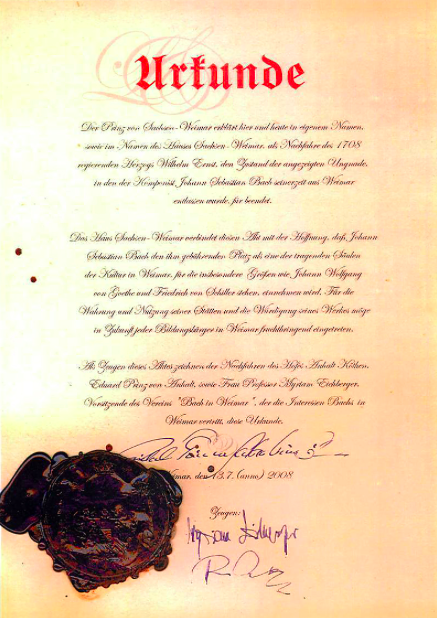 Urkunde
Der Prinz von Sachsen-Weimar erklärt hier und heute in eigenem Namen,
sowie im Namen des Hauses Sachsen-Weimar, als Nachfahre des 1708
regierenden Herzogs Wilhelm Ernst, den Zustand der angezeigten Ungnade,
in den der Komponist Johann Sebastian Bach seinerzeit aus Weimar
entlassen wurde, für beendet.
Das Haus Sachsen-Weimar verbindet diesen Akt mit der Hoffnung, daß, Johann
Sebastian Bach den ihm gebührenden Platz als eine der tragenden Säulen
der Kultur in Weimar, für die insbesondere Größen wie, Johann Wolfgang
von Goethe und Friedrich von Schiller stehen, einnehmen wird. Für die
Wahrung und Nutzung seiner Stätten und die Würdigung seines Werkes möge
in Zukunft jeder Bildungsbürger in Weimar fruchtbringend eingetreten.
Als Zeugen dieses Aktes zeichnen der Nachfahren des Hofes Anhalt Köthen,
Eduard Prinz von Anhalt, sowie Frau Professor Myriam Eichberger,
Vorsitzende des Vereins "Bach in Weimar", der die Interessen Bachs in
Weimar vertritt, diese Urkunde.
Weimar, den 13.7. (anno) 2008
Zeugen: